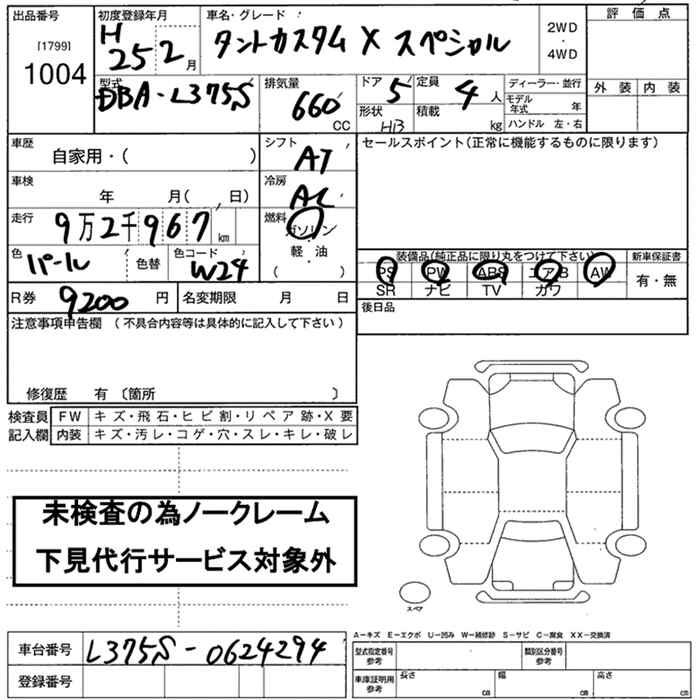 出品番号 初度登録年月 車名・グレード 評価点
[1799] 1004 H 25 2月 タントカスタム X スペシャル 2WD・4WD
外装 内装
型式 DBA-L375S 排気量 660 CC ドア 5 定員 4 人 ディーラー・並行
形状 HB 積載 kg モデル年式 年
ハンドル 左・右
車歴 自家用・( ) シフト AT セールスポイント(正常に機能するものに限ります)
車検 年 月( 日) 冷房 AC
走行 9万2千967 km 燃料 ガソリン・軽油 ( )
色 パール 色替 色コード W24
装備品(純正品に限り丸をつけて下さい) 新車保証書
PS PW ABS エアB AW 有・無
SR ナビ TV カワ
R券 9200 円 名変期限 月 日 後日品
注意事項申告欄 (不具合内容等は具体的に記入して下さい)
修復歴 有 〔箇所 〕
検査員 FW キズ・飛石・ヒビ割・リペア跡・X要
記入欄 内装 キズ・汚レ・コゲ・穴・スレ・キレ・破レ
未検査の為ノークレーム
下見代行サービス対象外
スペア
A-キズ E-エクボ U-凹み W-補修跡 S-サビ C-腐食 XX-交換済
車台番号 L375S-0624294 型式指定番号 参考 類別区分番号 参考
登録番号 車庫証明用 参考 長さ cm 幅 cm 高さ cm